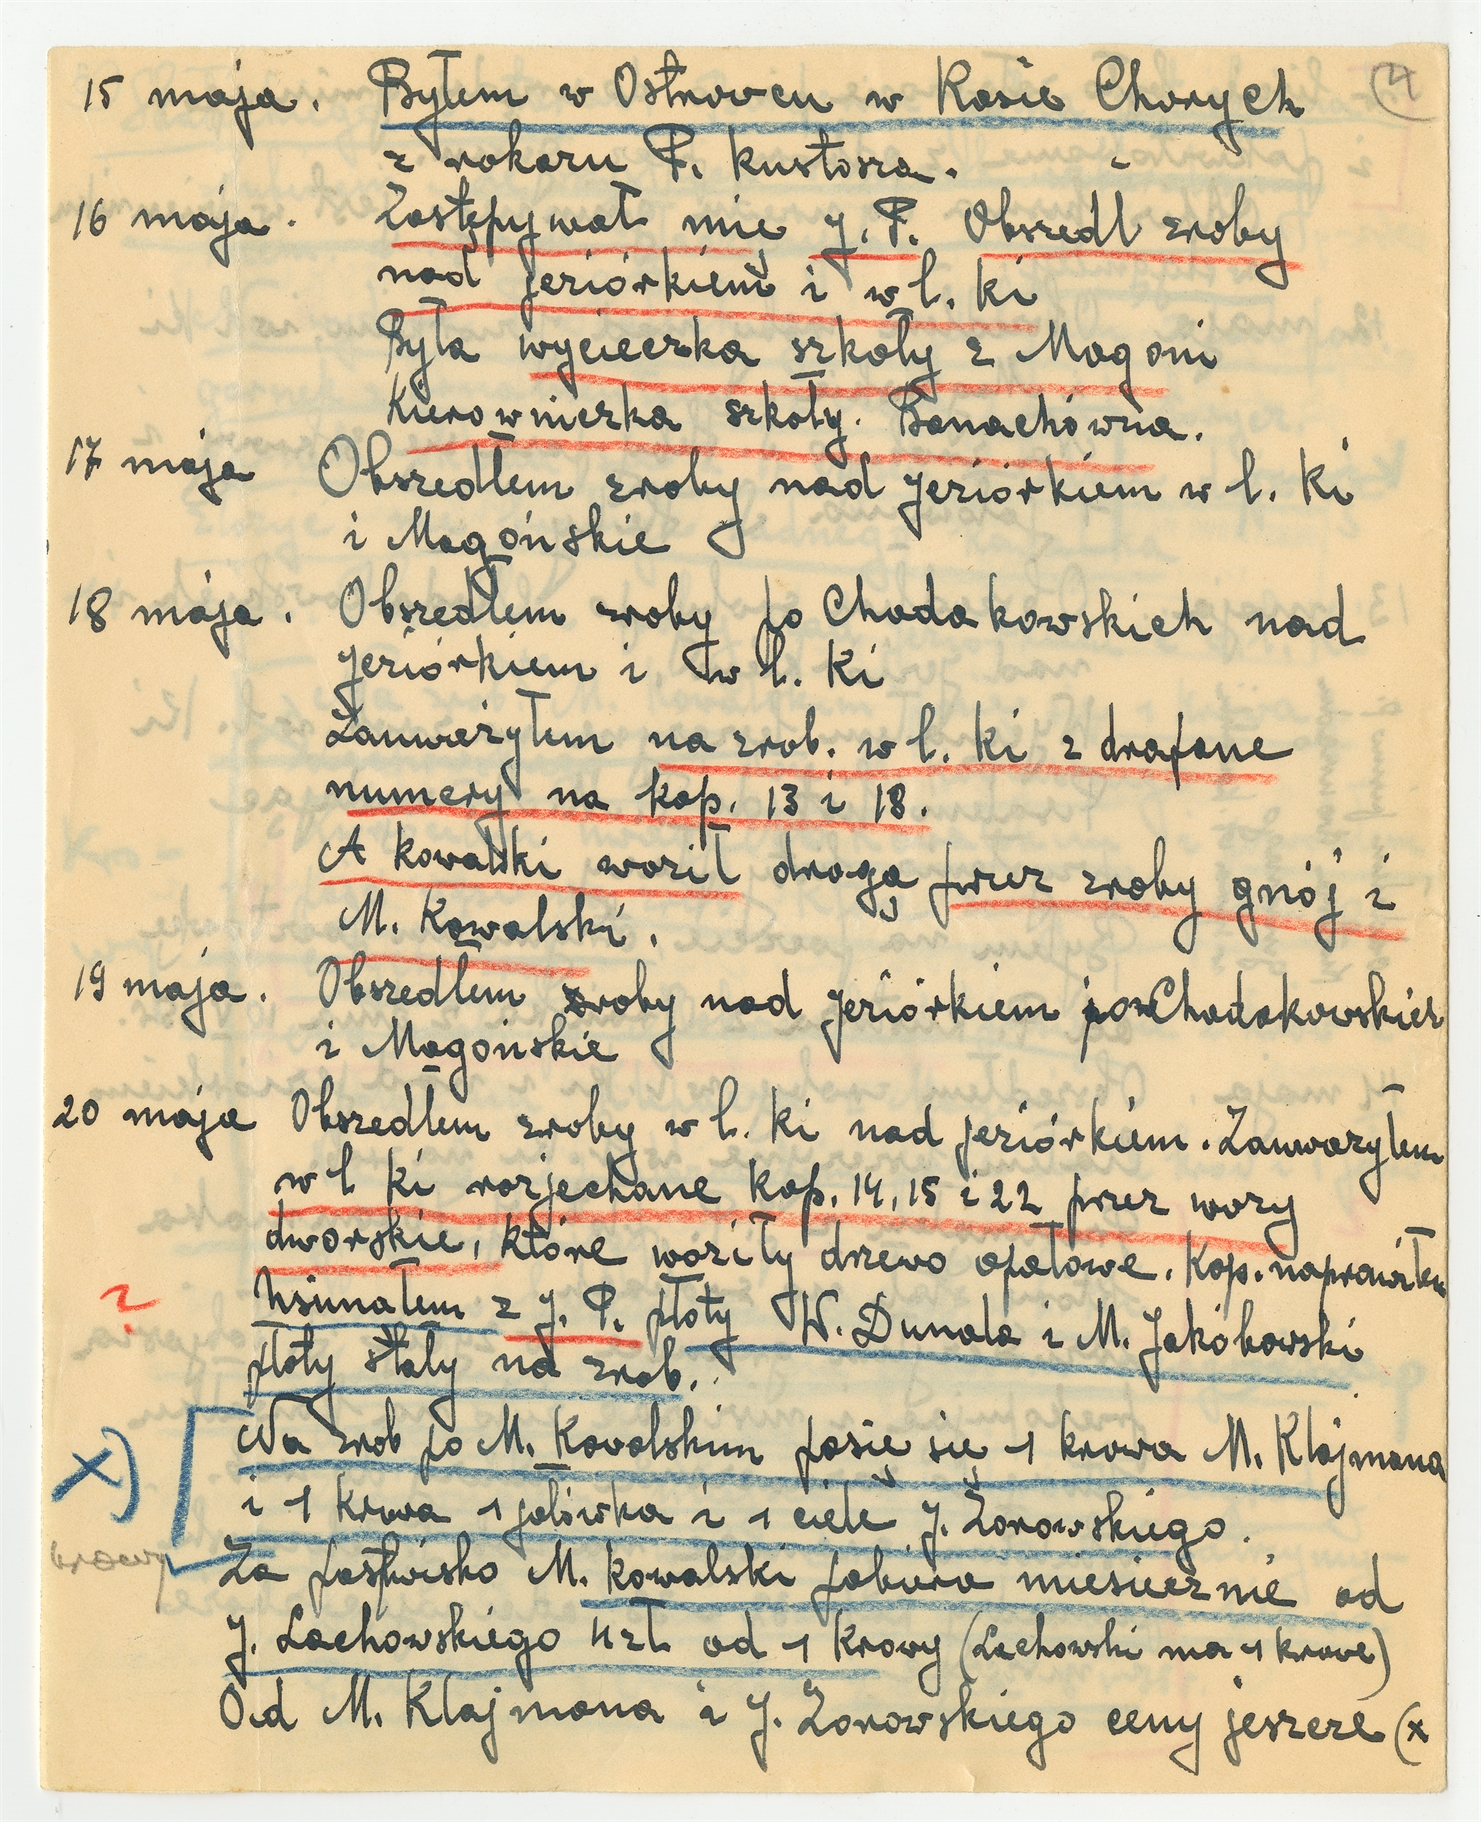 4
15 maja. Byłem w Ostrowcu w Kasie Chorych
z rokazu P. Kustosza.
16 maja. Zastępywał mię J. P. Obszedl zroby
nad jeziórkiem i w l. ki
Była wycieczka szkoły z Magoni
Kierowniczka szkoły. Banachówna.
17 maja Obszedłem zroby nad jeziórkiem w l. ki
i Magońskie
18 maja. Obszedłem zroby po Chodakowskich nad
jeziórkiem i w l. ki
Zauważyłem na zrob. w l. ki z drapane
numery na kop. 13 i 18.
A Kowalski woził drogą przez zroby gnój i
M. Kowalski.
19 maja. Obszedłem zroby nad jeziórkiem po Chodakowskich
i Magońskie
20 maja Obszedłem zroby w l. ki nad jeziórkiem. Zauwarzyłem
w l ki rozjechane kop. 14, 15 i 22 przez wozy
dworskie, które woziły drzewo opałowe. Kop. naprawiłem
?
Usunałem z J. P. płoty W. Dunala i M. Jakóbowski
płoty stały na zrob.
x) Na zrob po M. Kowalskim pasie się 1 krowa M. Klajmana
i 1 krowa 1 jałówka i 1 ciele J. Żorowskiego.
Za pastwisko M. Kowalski pobiera miesiecznie od
J. Lachowskiego 4 zł. od 1 Krowy (Lachowski ma 1 krowe)
Od M. Klajmana i J. Żorowskiego ceny jeszcze (x